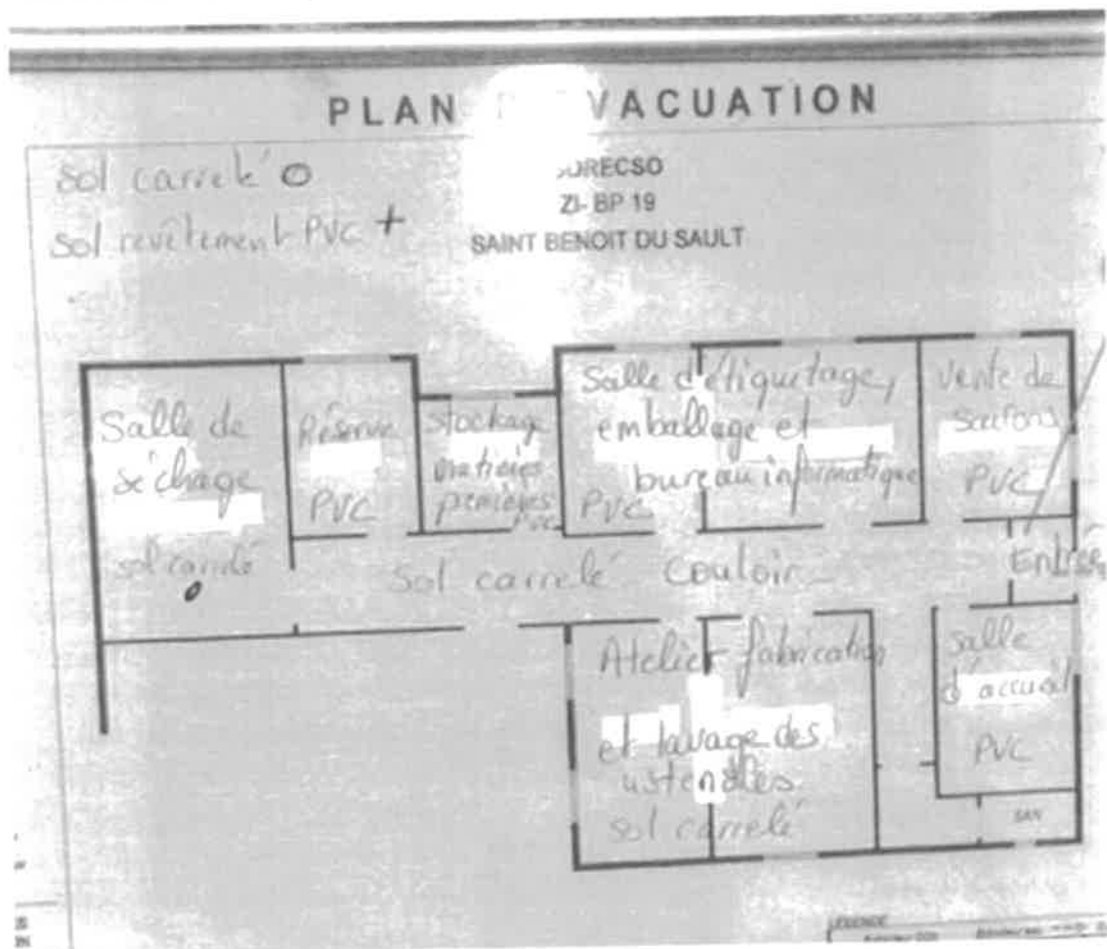 PLAN VACUATION
sol carrelé O
sol revêtement PVC +
ORECSO
ZI- BP 19
SAINT BENOIT DU SAULT
Salle de
séchage
sol carrelé
Réserve
PVC
stockage
matières
premières
PVC
Salle d'étiquetage,
emballage et
bureau informatique
PVC
Vente de
savons
PVC
Sol carrelé Couloir
Entrée
Atelier fabrication
et lavage des
ustensiles
sol carrelé
salle
d'accueil
PVC
SAN
LEGENDE